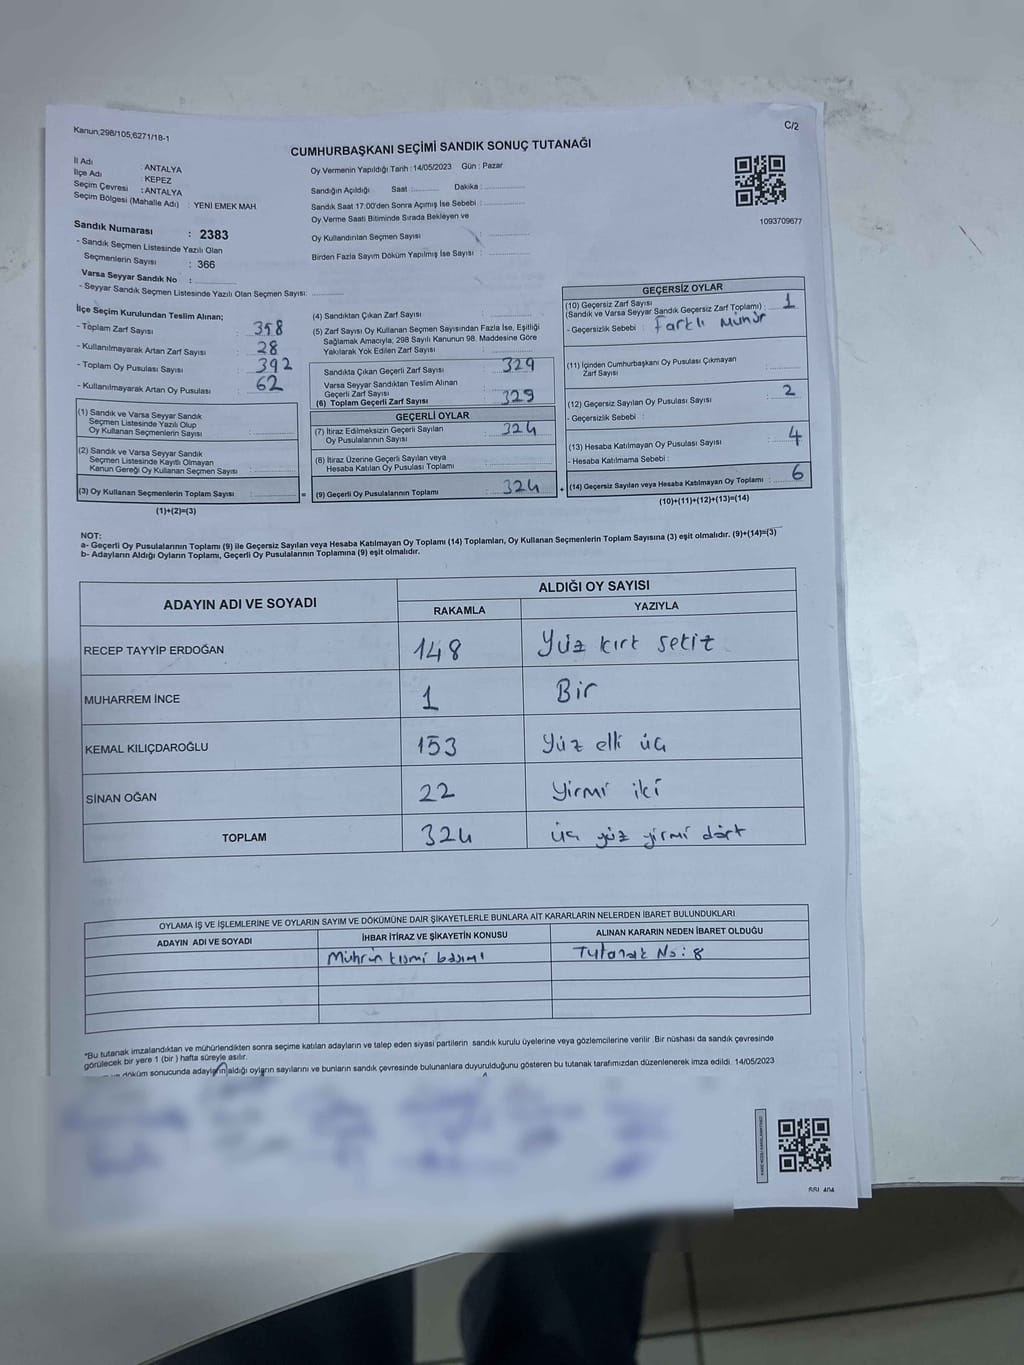 Kanun;298/105;6271/18-1
C/2
CUMHURBAŞKANI SEÇİMİ SANDIK SONUÇ TUTANAĞI
İl Adı : ANTALYA
İlçe Adı : KEPEZ
Seçim Çevresi : ANTALYA
Seçim Bölgesi (Mahalle Adı) : YENİ EMEK MAH
Sandık Numarası : 2383
- Sandık Seçmen Listesinde Yazılı Olan
Seçmenlerin Sayısı : 366
Varsa Seyyar Sandık No :
- Seyyar Sandık Seçmen Listesinde Yazılı Olan Seçmen Sayısı:
Oy Vermenin Yapıldığı Tarih : 14/05/2023 Gün : Pazar
Sandığın Açıldığı Saat : Dakika :
Sandık Saat 17:00'den Sonra Açımış İse Sebebi :
Oy Verme Saati Bitiminde Sırada Bekleyen ve
Oy Kullandırılan Seçmen Sayısı :
Birden Fazla Sayım Döküm Yapılmış İse Sayısı :
1093709677
İlçe Seçim Kurulundan Teslim Alınan;
- Toplam Zarf Sayısı : 358
- Kullanılmayarak Artan Zarf Sayısı : 28
- Toplam Oy Pusulası Sayısı : 392
- Kullanılmayarak Artan Oy Pusulası : 62
(1) Sandık ve Varsa Seyyar Sandık
Seçmen Listesinde Yazılı Olup
Oy Kullanan Seçmenlerin Sayısı :
(2) Sandık ve Varsa Seyyar Sandık
Seçmen Listesinde Kayıtlı Olmayan
Kanun Gereği Oy Kullanan Seçmen Sayısı :
(3) Oy Kullanan Seçmenlerin Toplam Sayısı : =
(1)+(2)=(3)
(4) Sandıktan Çıkan Zarf Sayısı :
(5) Zarf Sayısı Oy Kullanan Seçmen Sayısından Fazla İse, Eşitliği
Sağlamak Amacıyla; 298 Sayılı Kanunun 98. Maddesine Göre
Yakılarak Yok Edilen Zarf Sayısı :
Sandıkta Çıkan Geçerli Zarf Sayısı : 329
Varsa Seyyar Sandıktan Teslim Alınan
Geçerli Zarf Sayısı :
(6) Toplam Geçerli Zarf Sayısı : 329
GEÇERLİ OYLAR
(7) İtiraz Edilmeksizin Geçerli Sayılan
Oy Pusulalarının Sayısı : 324
(8) İtiraz Üzerine Geçerli Sayılan veya
Hesaba Katılan Oy Pusulası Toplamı :
(9) Geçerli Oy Pusulalarının Toplamı : 324 +
GEÇERSİZ OYLAR
(10) Geçersiz Zarf Sayısı
(Sandık ve Varsa Seyyar Sandık Geçersiz Zarf Toplamı) : 1
- Geçersizlik Sebebi : Farklı Mühür
(11) İçinden Cumhurbaşkanı Oy Pusulası Çıkmayan
Zarf Sayısı :
(12) Geçersiz Sayılan Oy Pusulası Sayısı : 2
- Geçersizlik Sebebi :
(13) Hesaba Katılmayan Oy Pusulası Sayısı : 4
- Hesaba Katılmama Sebebi :
(14) Geçersiz Sayılan veya Hesaba Katılmayan Oy Toplamı : 6
(10)+(11)+(12)+(13)=(14)
NOT:
a- Geçerli Oy Pusulalarının Toplamı (9) ile Geçersiz Sayılan veya Hesaba Katılmayan Oy Toplamı (14) Toplamları, Oy Kullanan Seçmenlerin Toplam Sayısına (3) eşit olmalıdır. (9)+(14)=(3)
b- Adayların Aldığı Oyların Toplamı, Geçerli Oy Pusulalarının Toplamına (9) eşit olmalıdır.
ADAYIN ADI VE SOYADI
ALDIĞI OY SAYISI
RAKAMLA YAZIYLA
RECEP TAYYİP ERDOĞAN 148 Yüz kırk sekiz
MUHARREM İNCE 1 Bir
KEMAL KILIÇDAROĞLU 153 Yüz elli üç
SİNAN OĞAN 22 Yirmi iki
TOPLAM 324 üç yüz yirmi dört
OYLAMA İŞ VE İŞLEMLERİNE VE OYLARIN SAYIM VE DÖKÜMÜNE DAİR ŞİKAYETLERLE BUNLARA AİT KARARLARIN NELERDEN İBARET BULUNDUKLARI
ADAYIN ADI VE SOYADI İHBAR İTİRAZ VE ŞİKAYETİN KONUSU ALINAN KARARIN NEDEN İBARET OLDUĞU
Mührün kısmi basımı Tutanak No: 8
*Bu tutanak imzalandıktan ve mühürlendikten sonra seçime katılan adayların ve talep eden siyasi partilerin sandık kurulu üyelerine veya gözlemcilerine verilir. Bir nüshası da sandık çevresinde
görülecek bir yere 1 (bir) hafta süreyle asılır.
döküm sonucunda adayların aldığı oyların sayılarını ve bunların sandık çevresinde bulunanlara duyurulduğunu gösteren bu tutanak tarafımızdan düzenlenerek imza edildi. 14/05/2023